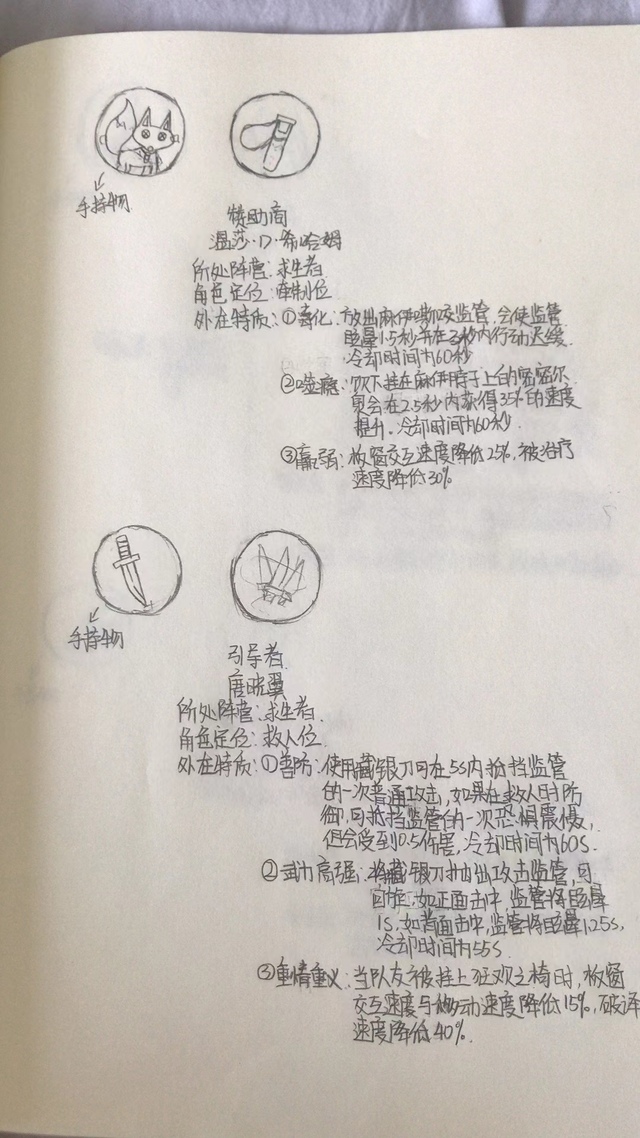 手持物
赞助商
温莎·D·希哈姆
所处阵营:求生者
角色定位:牵制位
外在特质:①毒化:放出麻伊嘶咬监管,会使监管
眩晕1.5秒并在3秒内行动迟缓.
冷却时间为60秒
②噬瘾:饮下挂在麻伊脖子上的密密尔
更会在2.5秒内获得35%的速度
提升.冷却时间为60秒.
③羸弱:板窗交互速度降低25%,被治疗
速度降低30%
手持物
引导者
唐晓翼
所处阵营:求生者.
角色定位:救人位
外在特质:①善防:使用藏银刀可在5s内抢挡监管
的一次普通攻击,如果在救人时防
御,可抢挡监管的一次恐惧震慑,
但会受到0.5伤害,冷却时间为60s.
②武力高强:将藏银刀抽出攻击监管,可
自旋.如正面击中,监管将眩晕
1s,如背面击中,监管将眩晕1.25s,
冷却时间为55s.
③重情重义:当队友被挂上狂欢之椅时,板窗
交互速度与移动速度降低15%,破译
速度降低40%.